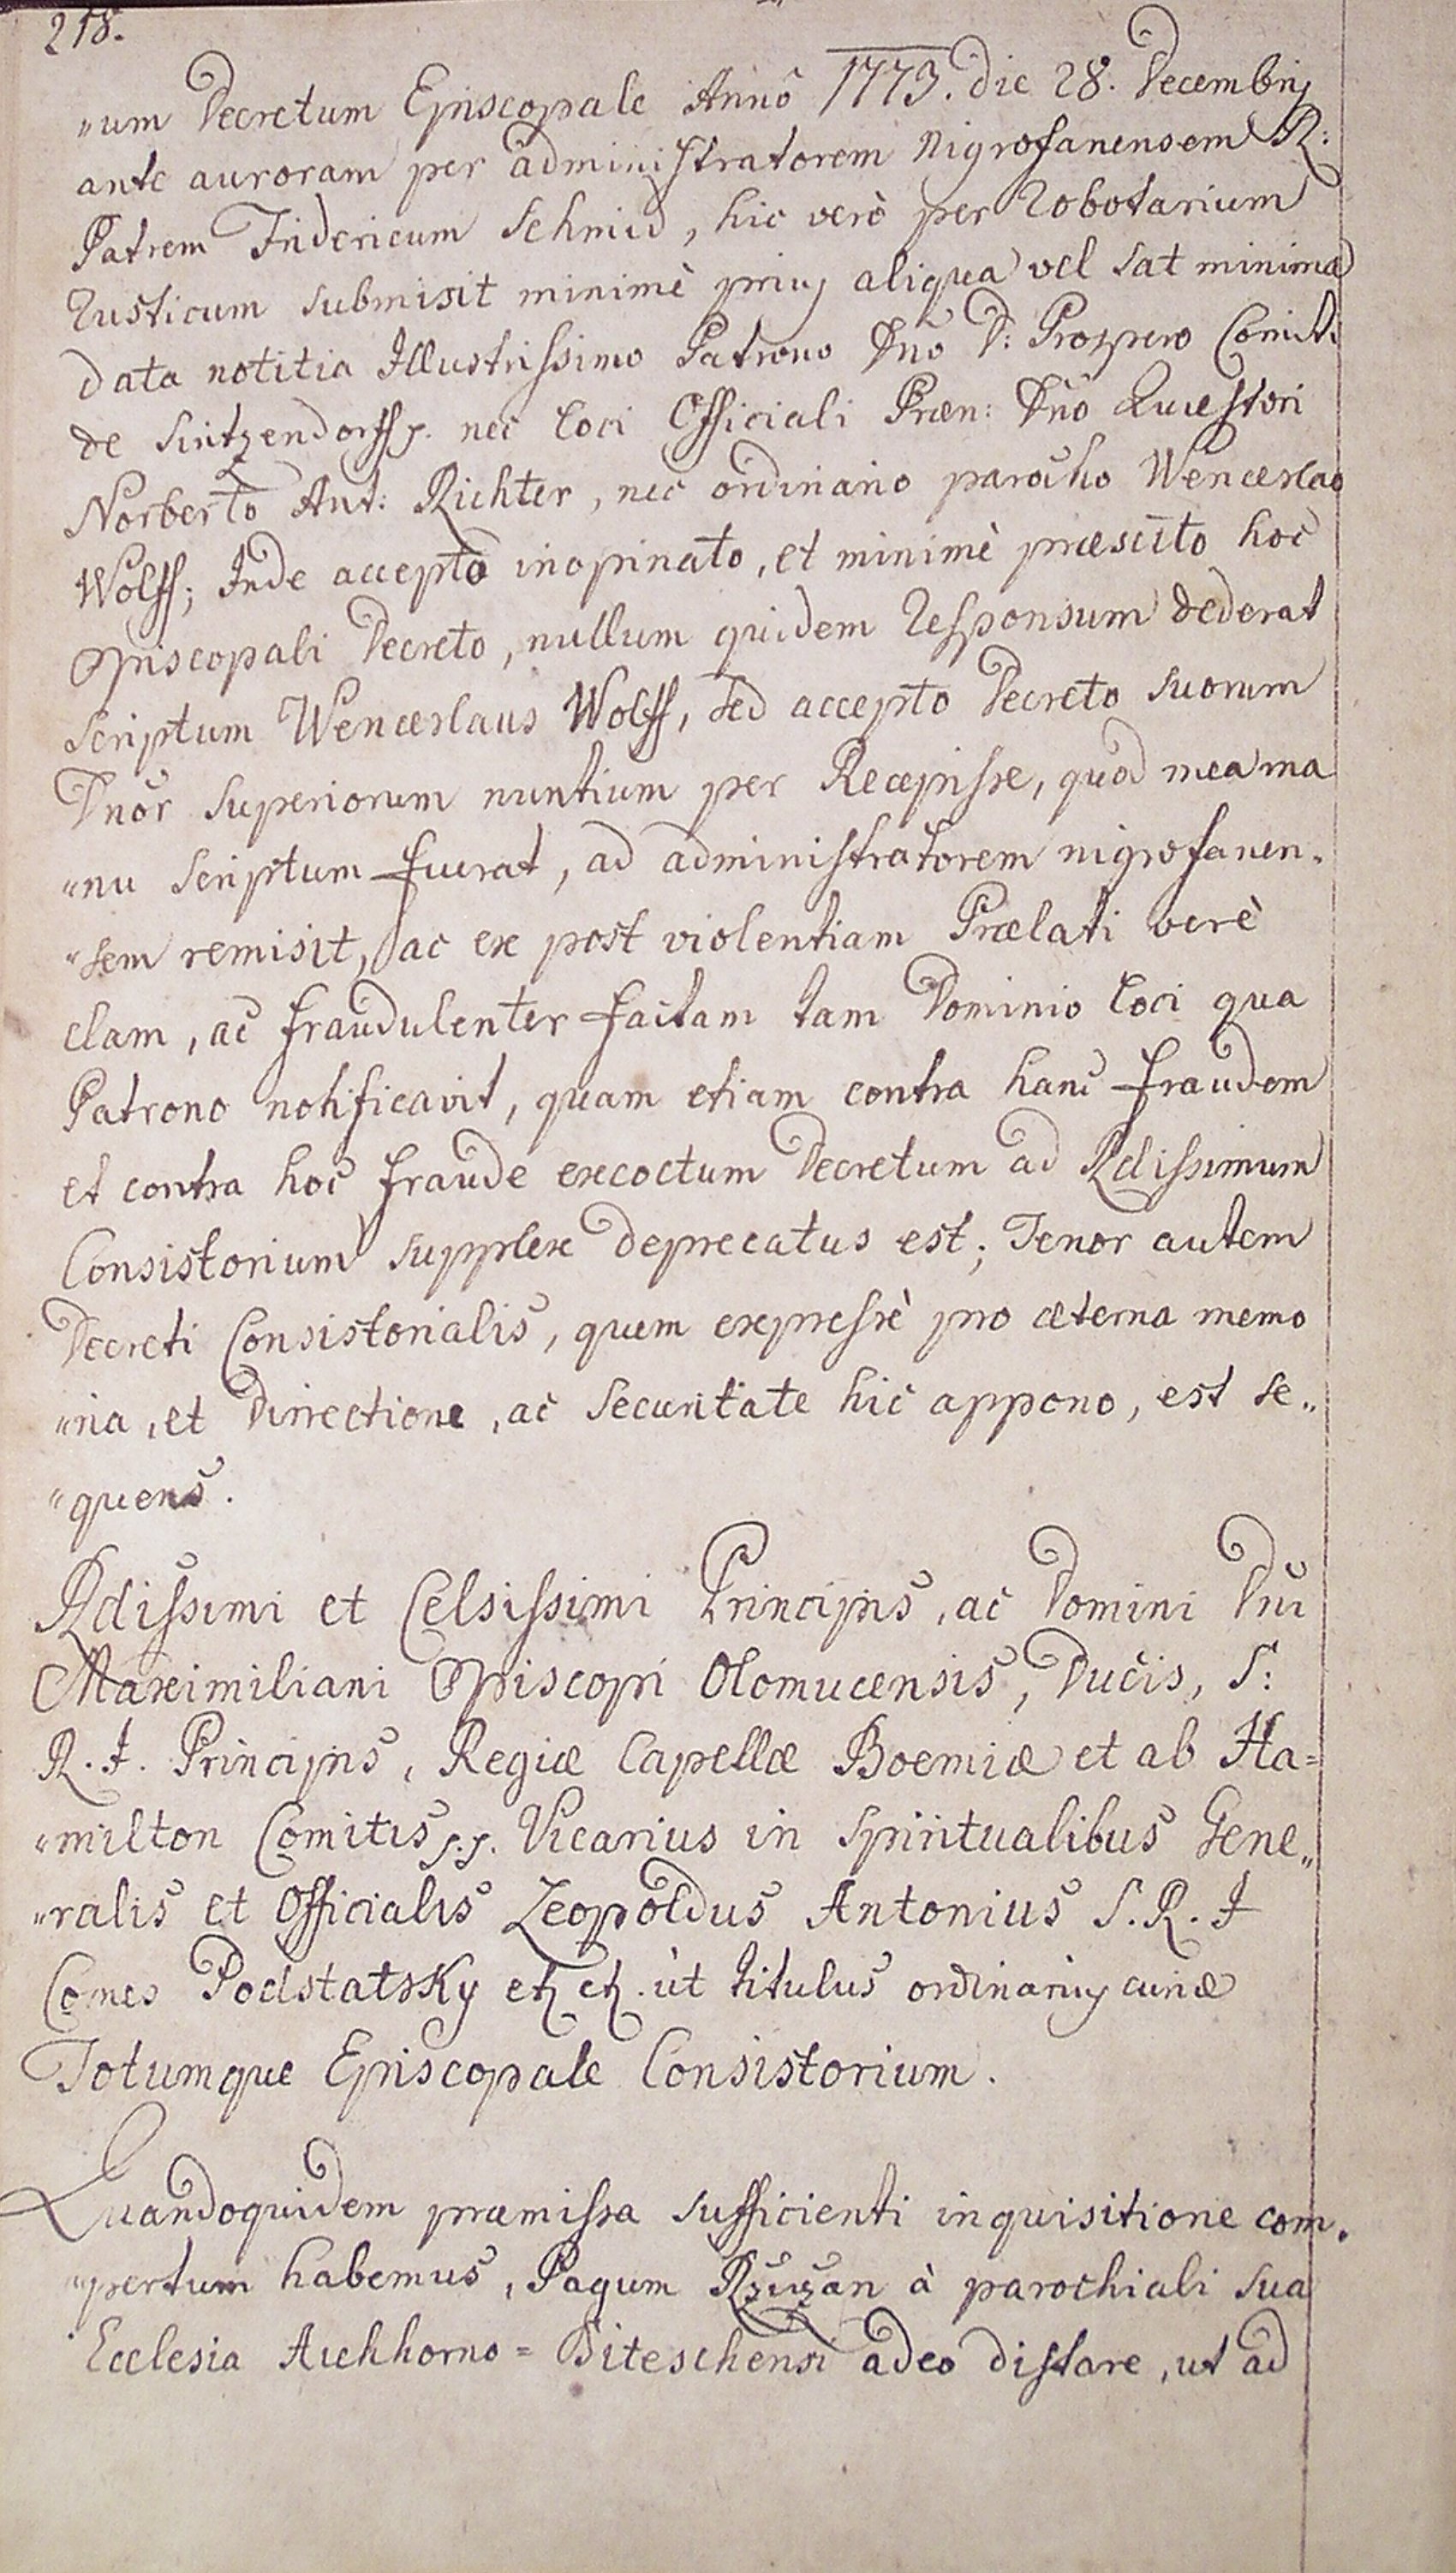 218.
„um Decretum Episcopale Annô 1773. die 28. Decembris
ante auroram per administratorem Nigrofanensem R:
Patrem Fridericum Schmid, hic verò per Robotarium
Rusticum submisit minimè prius aliqua vel sat minima
data notitia Illustrissimo Patrono Dno D: Prospero Comiti
de Sintzendorff p. nec loci Officiali Præn: Dño Quæstori
Norberto Ant: Richter, nec ordinario parocho Wenceslao
Wolff; Inde accepto inopinato, et minimè præscito hoc
Episcopali Decreto, nullum quidem Responsum dederat
scriptum Wenceslaus Wolff, sed accepto Decreto suorum
Dnor Superiorum nuntium per Recepisse, quod mea ma
„nu scriptum fuerat, ad administratorem nigrofanen„
„sem remisit, ac ex post violentiam Prælati verè
clam, ac fraudulenter factam tam Dominio loci qua
Patrono notificavit, quam etiam contra hanc fraudem
et contra hoc fraude excoctum Decretum ad Rdissimum
Consistorium supplex deprecatus est; Tenor autem
Decreti Consistorialis, quem expressè pro æterna memo
„ria, et Dirrectione, ac Securitate hic appono, est se„
„quens.
Rdissimi et Celsissimi Principis, ac Domini Dni
Maximiliani Episcopi Olomucensis, Ducis, S:
R. I. Principis, Regiæ Capellæ Boemiæ et ab Ha=
„milton Comitis p.p. Vicarius in Spiritualibus Gene„
„ralis et Officialis Leopoldus Antonius S. R. I
Comes Podstatsky etz etz. ùt titulus ordinarius curiæ
Totumque Episcopale Consistorium.
Quandoquidem præmissa sufficienti inquisitione com„
„pertum habemus, Pagum à parochiali sua
Ecclesia Aichhorno = Biteschensi adeo distare, ut ad